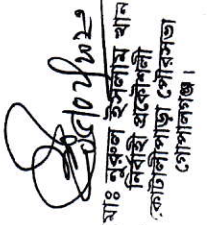 মোঃ নুরুল ইসলাম খান
নির্বাহী প্রকৌশলী
কোটালীপাড়া পৌরসভা
গোপালগঞ্জ।